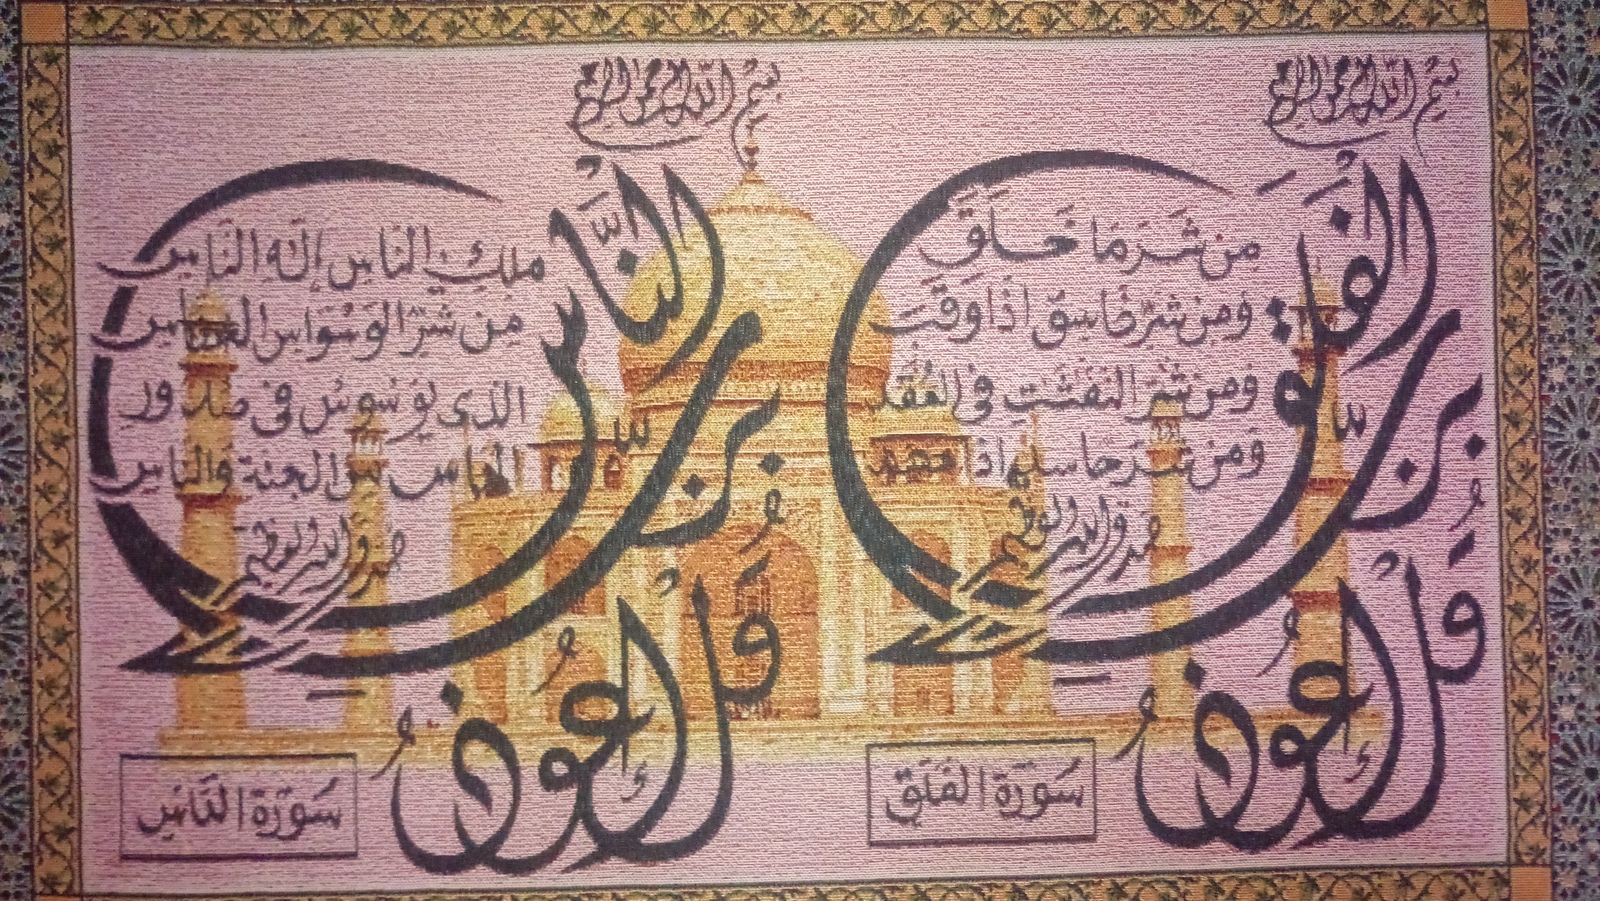 بسم الله الرحمن الرحيم
قل أعوذ
برب
الفلق
من شر ما خلق
ومن شر غاسق اذا وقب
ومن شر النفثت فى العقد
ومن شر حاسد اذا حسد
صدق الله العظيم
سورة الفلق
بسم الله الرحمن الرحيم
قل أعوذ
برب
الناس
ملك الناس إله الناس
من شر الوسواس الخناس
الذى يوسوس فى صدور
الناس من الجنة والناس
صدق الله العظيم
سورة الناس